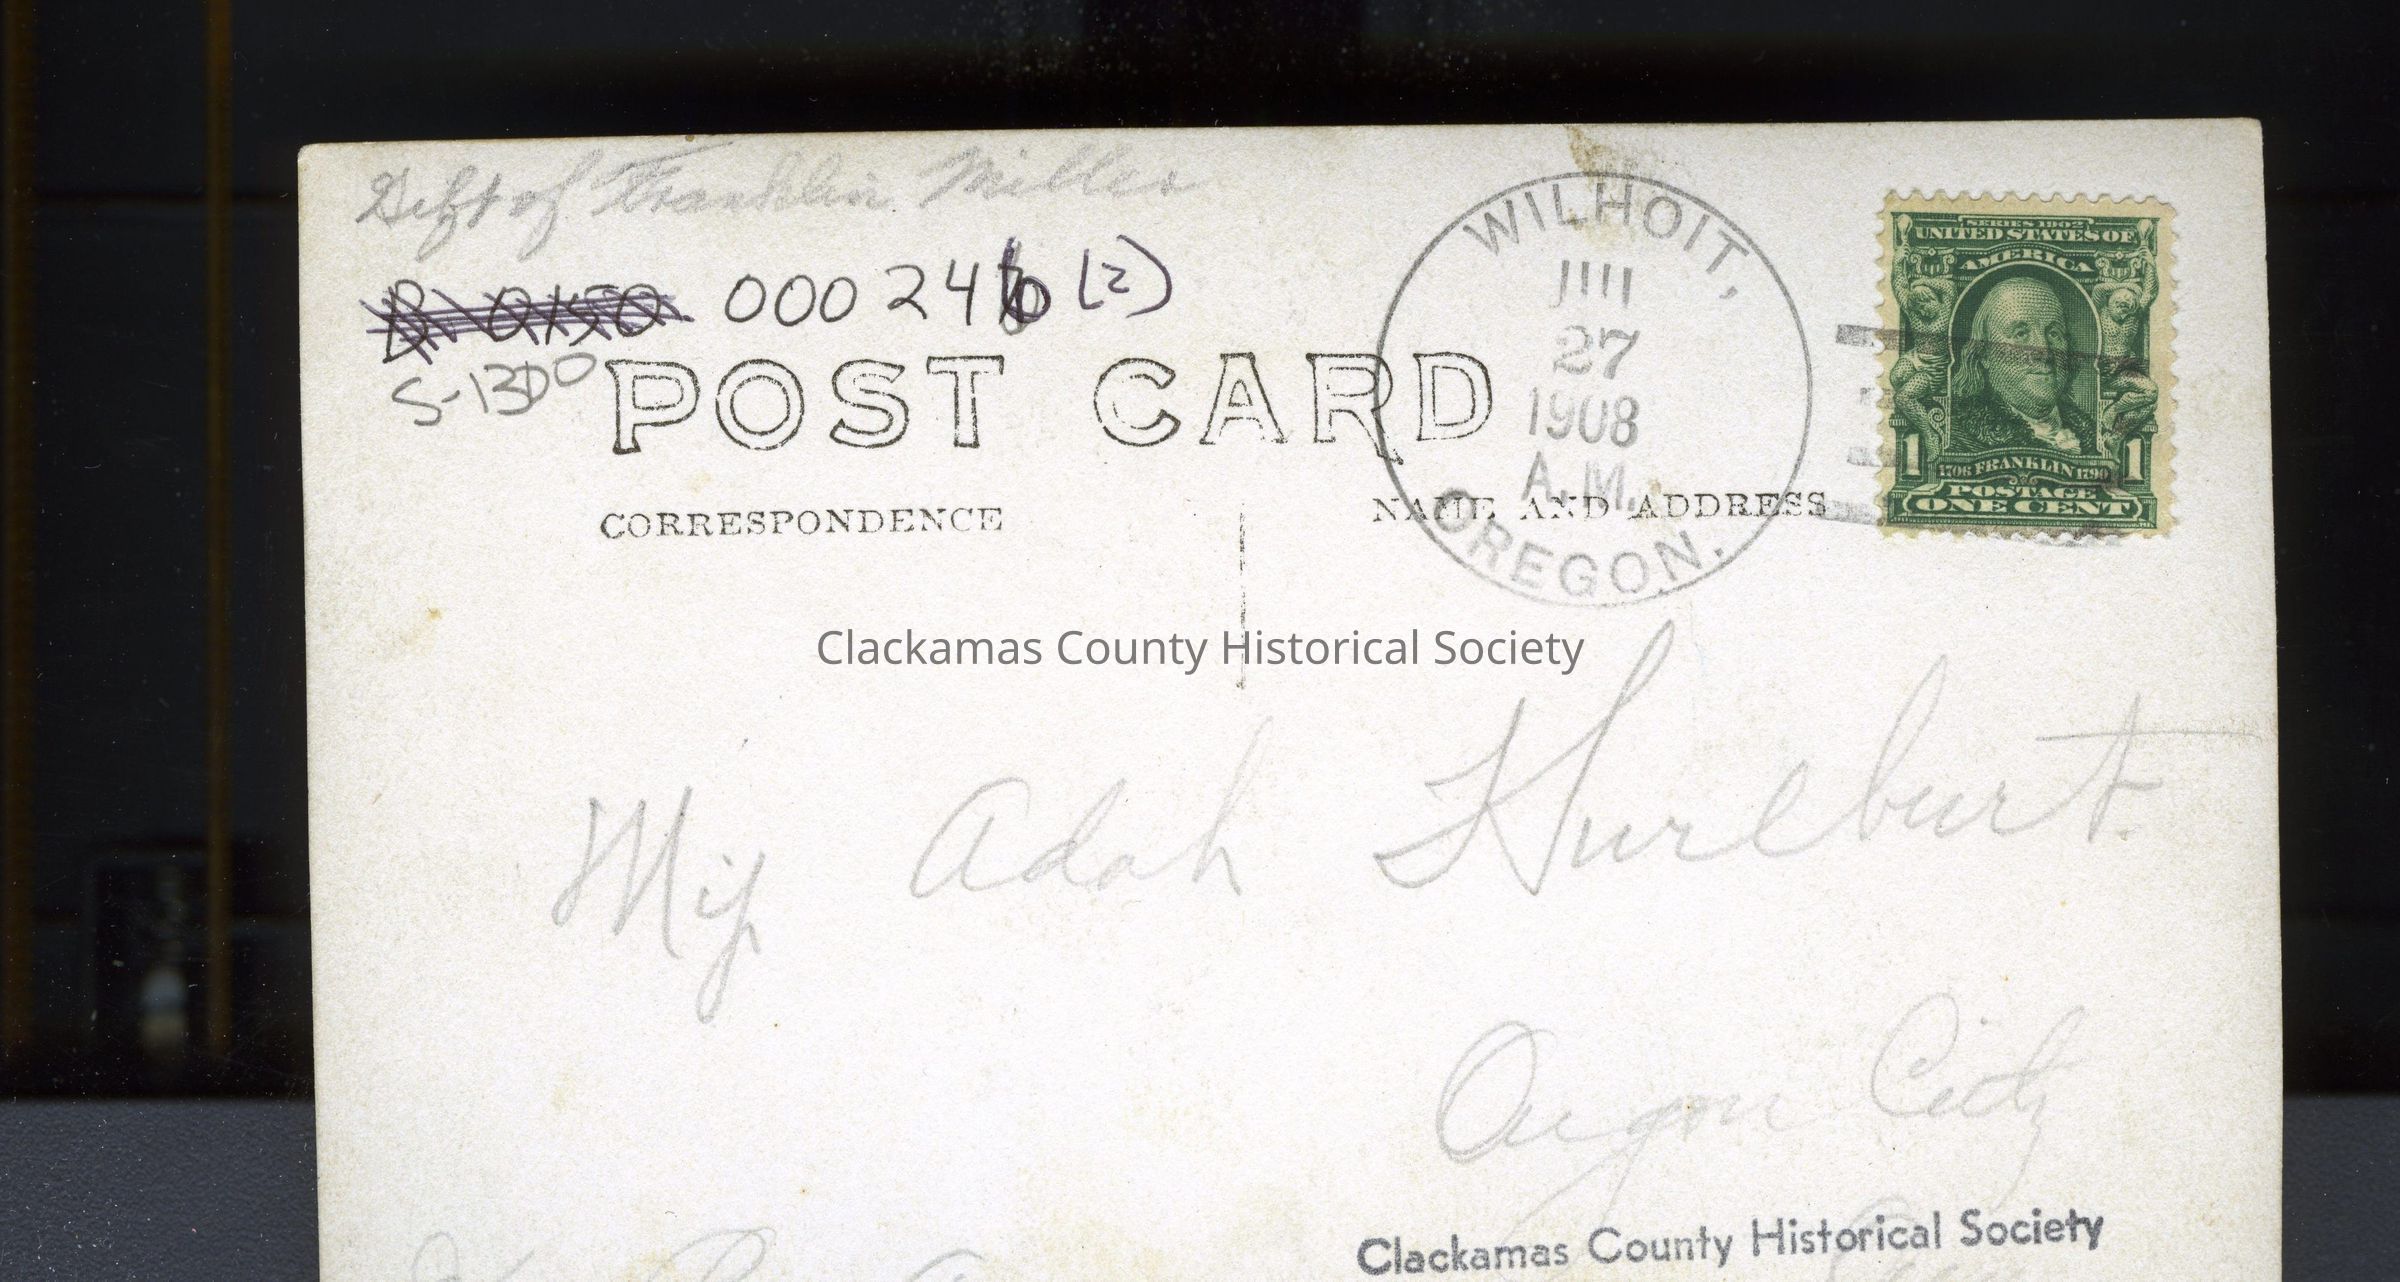 Gift of Franklin Miller
000 246 (2)
S-1300
POST CARD
CORRESPONDENCE
NAME AND ADDRESS
WILHOIT,
27
1908
A.M.
OREGON.
SERIES 1902
UNITED STATES OF
AMERICA
1706 FRANKLIN 1790
1 1
POSTAGE
ONE CENT
Clackamas County Historical Society
Miss Adah Hurlburt.
Oregon City
Clackamas County Historical Society